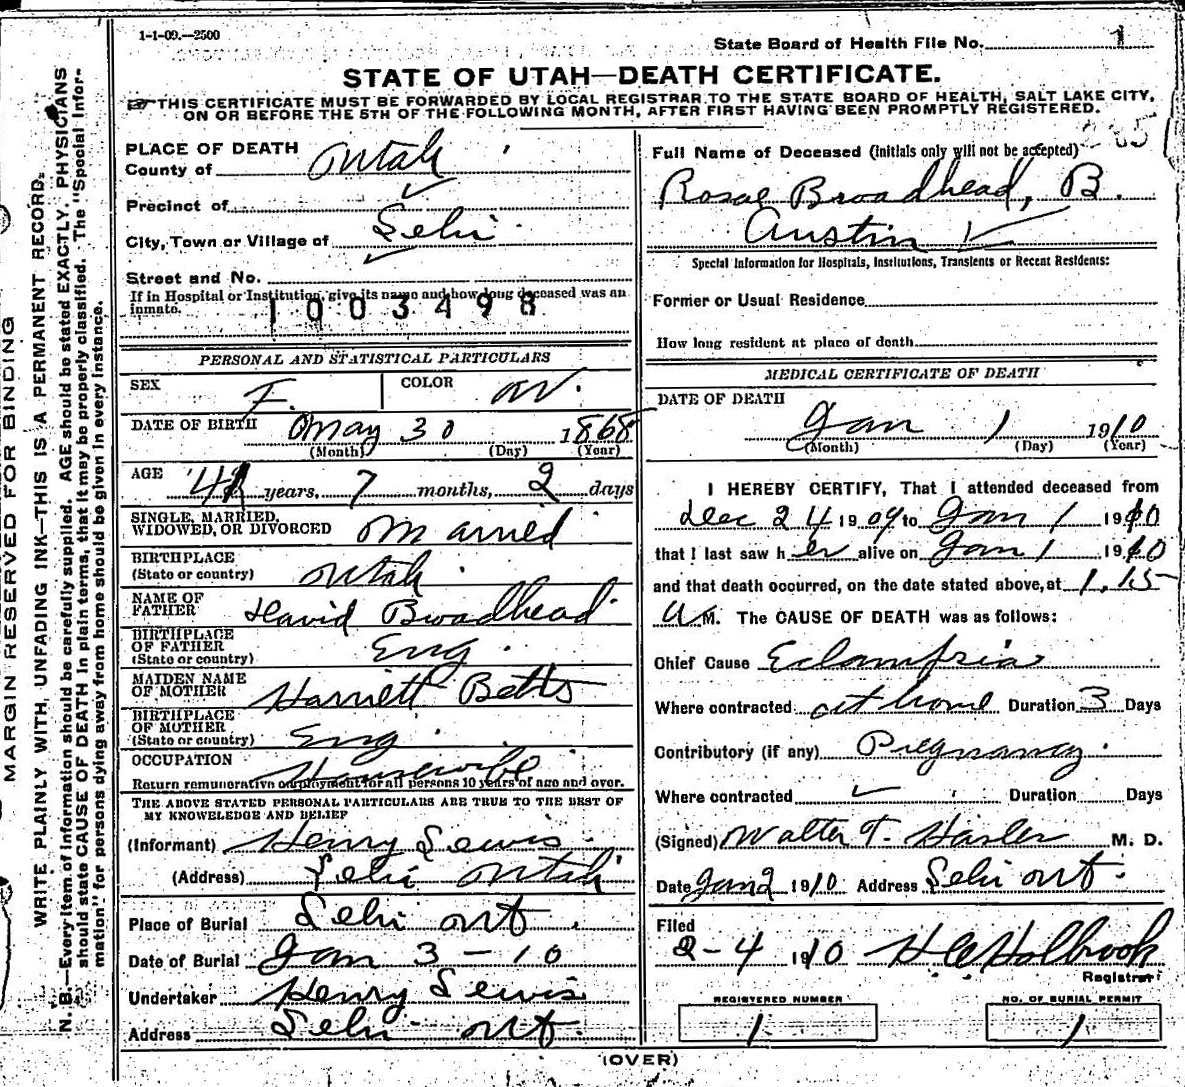 1-1-09.--2500
State Board of Health File No. 1
STATE OF UTAH—DEATH CERTIFICATE.
THIS CERTIFICATE MUST BE FORWARDED BY LOCAL REGISTRAR TO THE STATE BOARD OF HEALTH, SALT LAKE CITY,
ON OR BEFORE THE 5TH OF THE FOLLOWING MONTH, AFTER FIRST HAVING BEEN PROMPTLY REGISTERED.
MARGIN RESERVED FOR BINDING
WRITE PLAINLY WITH UNFADING INK—THIS IS A PERMANENT RECORD.
N. B.—Every item of information should be carefully supplied. AGE should be stated EXACTLY. PHYSICIANS
should state CAUSE OF DEATH in plain terms, that it may be properly classified. The "Special Infor-
mation" for persons dying away from home should be given in every instance.
PLACE OF DEATH
County of Utah
Precinct of
City, Town or Village of Lehi
Street and No.
If in Hospital or Institution, give its name and how long deceased was an
inmate.
1003498
PERSONAL AND STATISTICAL PARTICULARS
SEX F. COLOR W.
DATE OF BIRTH May 30 1868
(Month) (Day) (Year)
AGE 41 years, 7 months, 2 days
SINGLE, MARRIED,
WIDOWED, OR DIVORCED Married
BIRTHPLACE
(State or country) Utah
NAME OF
FATHER David Broadhead
BIRTHPLACE
OF FATHER
(State or country) Eng.
MAIDEN NAME
OF MOTHER Harriett Betts
BIRTHPLACE
OF MOTHER
(State or country) Eng.
OCCUPATION Housewife
Return remunerative employment for all persons 10 years of age and over.
THE ABOVE STATED PERSONAL PARTICULARS ARE TRUE TO THE BEST OF
MY KNOWLEDGE AND BELIEF
(Informant) Henry Lewis
(Address) Lehi Utah
Place of Burial Lehi Ut
Date of Burial Jan 3 - 10
Undertaker Henry Lewis
Address Lehi Ut
Full Name of Deceased (Initials only will not be accepted)
Rosae Broadhead, B.
Austin
Special Information for Hospitals, Institutions, Transients or Recent Residents:
Former or Usual Residence
How long resident at place of death
MEDICAL CERTIFICATE OF DEATH
DATE OF DEATH
Jan 1 1910
(Month) (Day) (Year)
I HEREBY CERTIFY, That I attended deceased from
Dec 24 1909 to Jan 1 1910
that I last saw her alive on Jan 1 1910
and that death occurred, on the date stated above, at 1.15
A M. The CAUSE OF DEATH was as follows:
Chief Cause Eclampsia
Where contracted at home Duration 3 Days
Contributory (if any) Pregnancy.
Where contracted Duration Days
(Signed) Walter T. Hasler M. D.
Date Jan 2 1910 Address Lehi Ut.
Filed
2-4 1910 H. A. Holbrook
Registrar
REGISTERED NUMBER
1
NO. OF BURIAL PERMIT
1
(OVER)